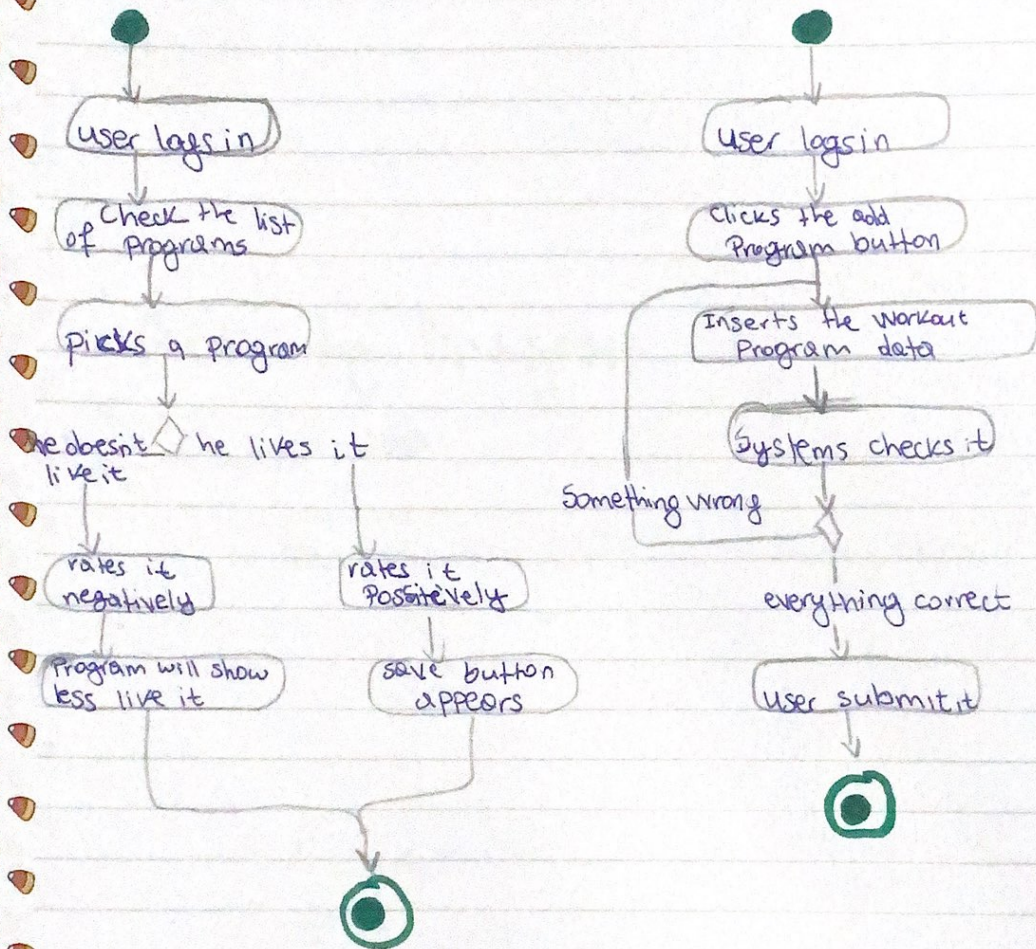 user logs in
Check the list
of programs
picks a program
he doesn't
live it
he lives it
rates it
negatively
rates it
possitevely
Program will show
less live it
save button
appears
user logs in
Clicks the add
Program button
Inserts the workout
Program data
Systems checks it
Something wrong
everything correct
user submit it